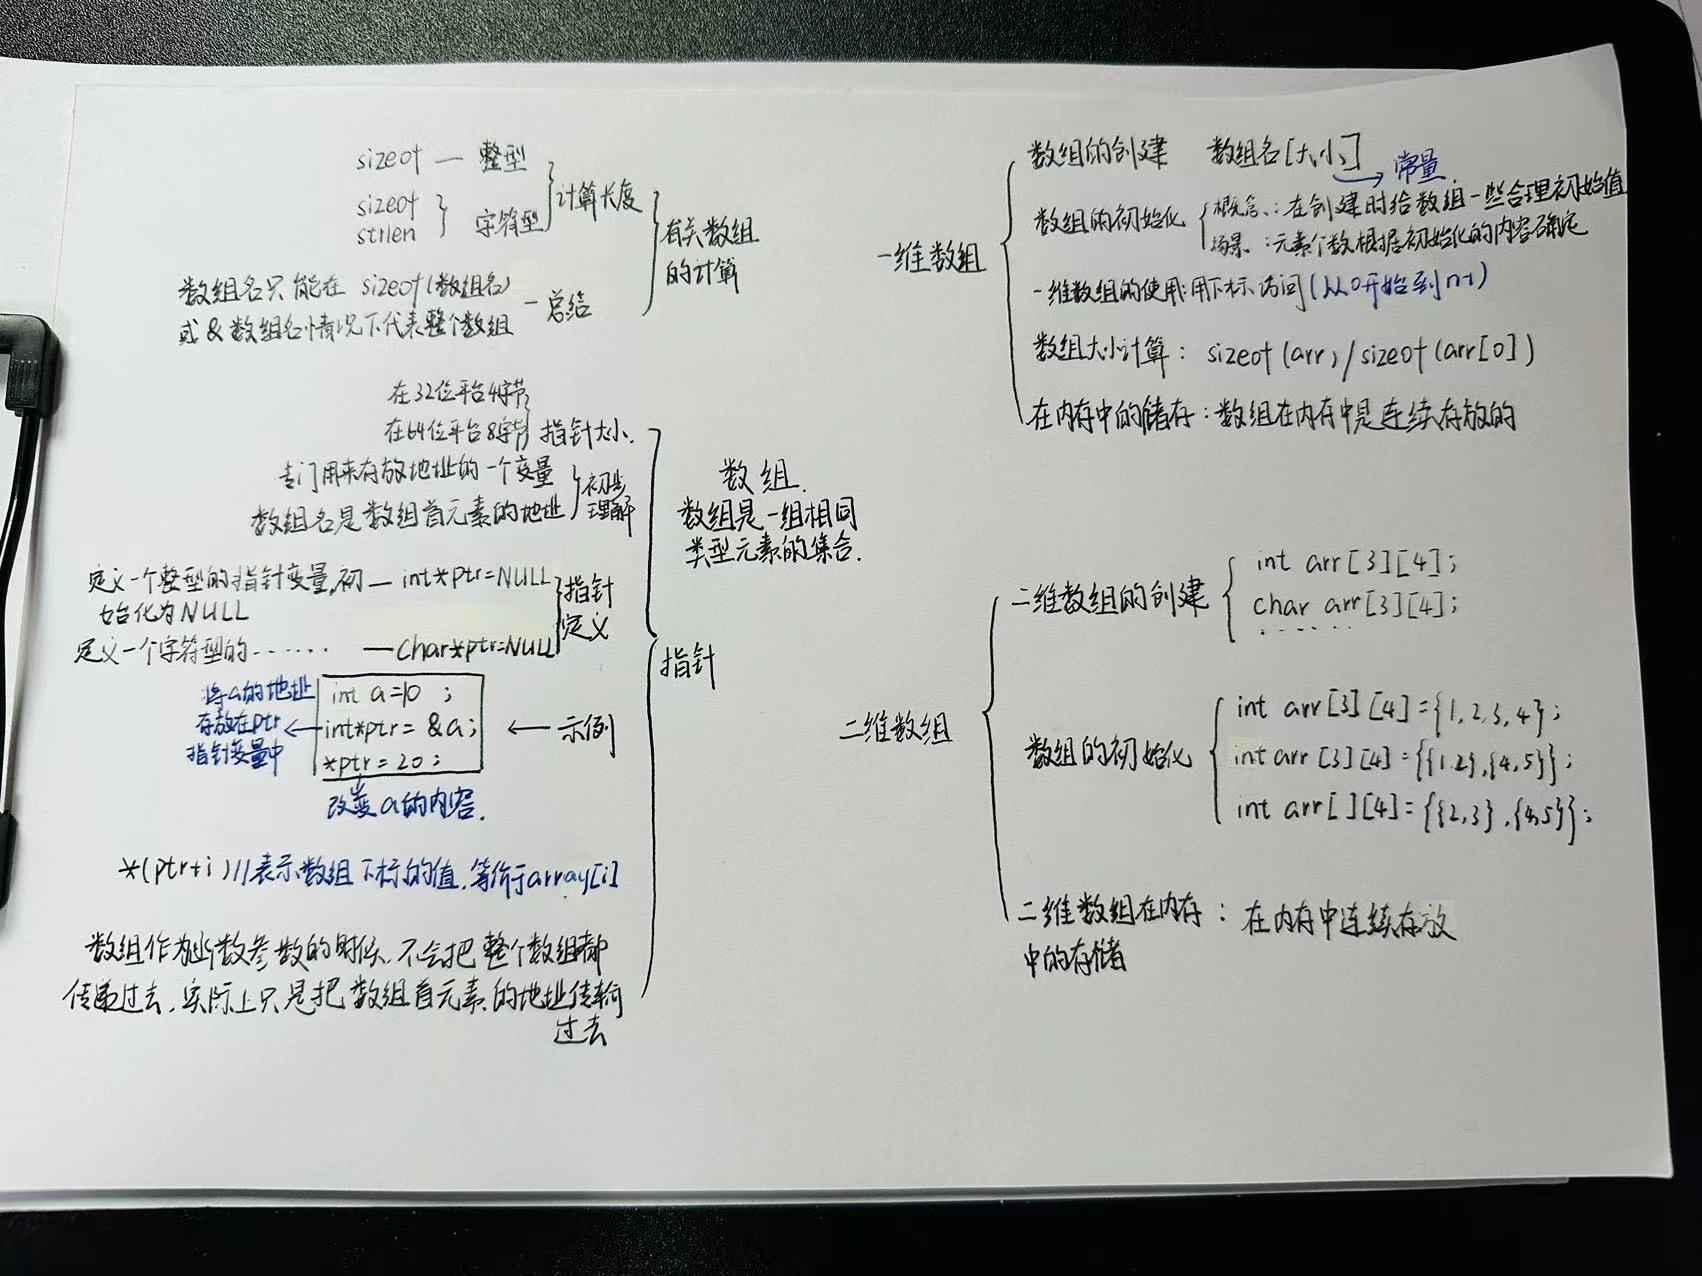 sizeof — 整型
sizeof
strlen
字符型
计算长度
数组名只能在 sizeof(数组名)
或&数组名情况下代表整个数组
— 总结
有关数组
的计算
在32位平台4字节
在64位平台8字节
指针大小.
专门用来存放地址的一个变量
数组名是数组首元素的地址
初步
理解
定义一个整型的指针变量,初 — int*ptr=NULL
始化为NULL
定义一个字符型的...... — char*ptr=NULL
指针
定义
将a的地址
存放在ptr
指针变量中
int a=10 ;
int*ptr= &a;
*ptr=20;
← 示例
改变a的内容.
*(ptr+i)//表示数组下标的值,等价于array[i]
数组作为函数参数的时候,不会把整个数组都
传递过去,实际上只是把数组首元素的地址传输
过去
指针
数组.
数组是一组相同
类型元素的集合.
一维数组
数组的创建 数组名[大小]
→ 常量
数组的初始化
概念:在创建时给数组一些合理初始值
场景:元素个数根据初始化的内容确定
一维数组的使用:用下标访问(从0开始到n-1)
数组大小计算: sizeof(arr)/sizeof(arr[0])
在内存中的储存:数组在内存中是连续存放的
二维数组
二维数组的创建
int arr[3][4];
char arr[3][4];
......
数组的初始化
int arr[3][4]={1,2,3,4};
int arr[3][4]={{1.2},{4,5}};
int arr[][4]={{2,3},{4,5}};
二维数组在内存:在内存中连续存放
中的存储